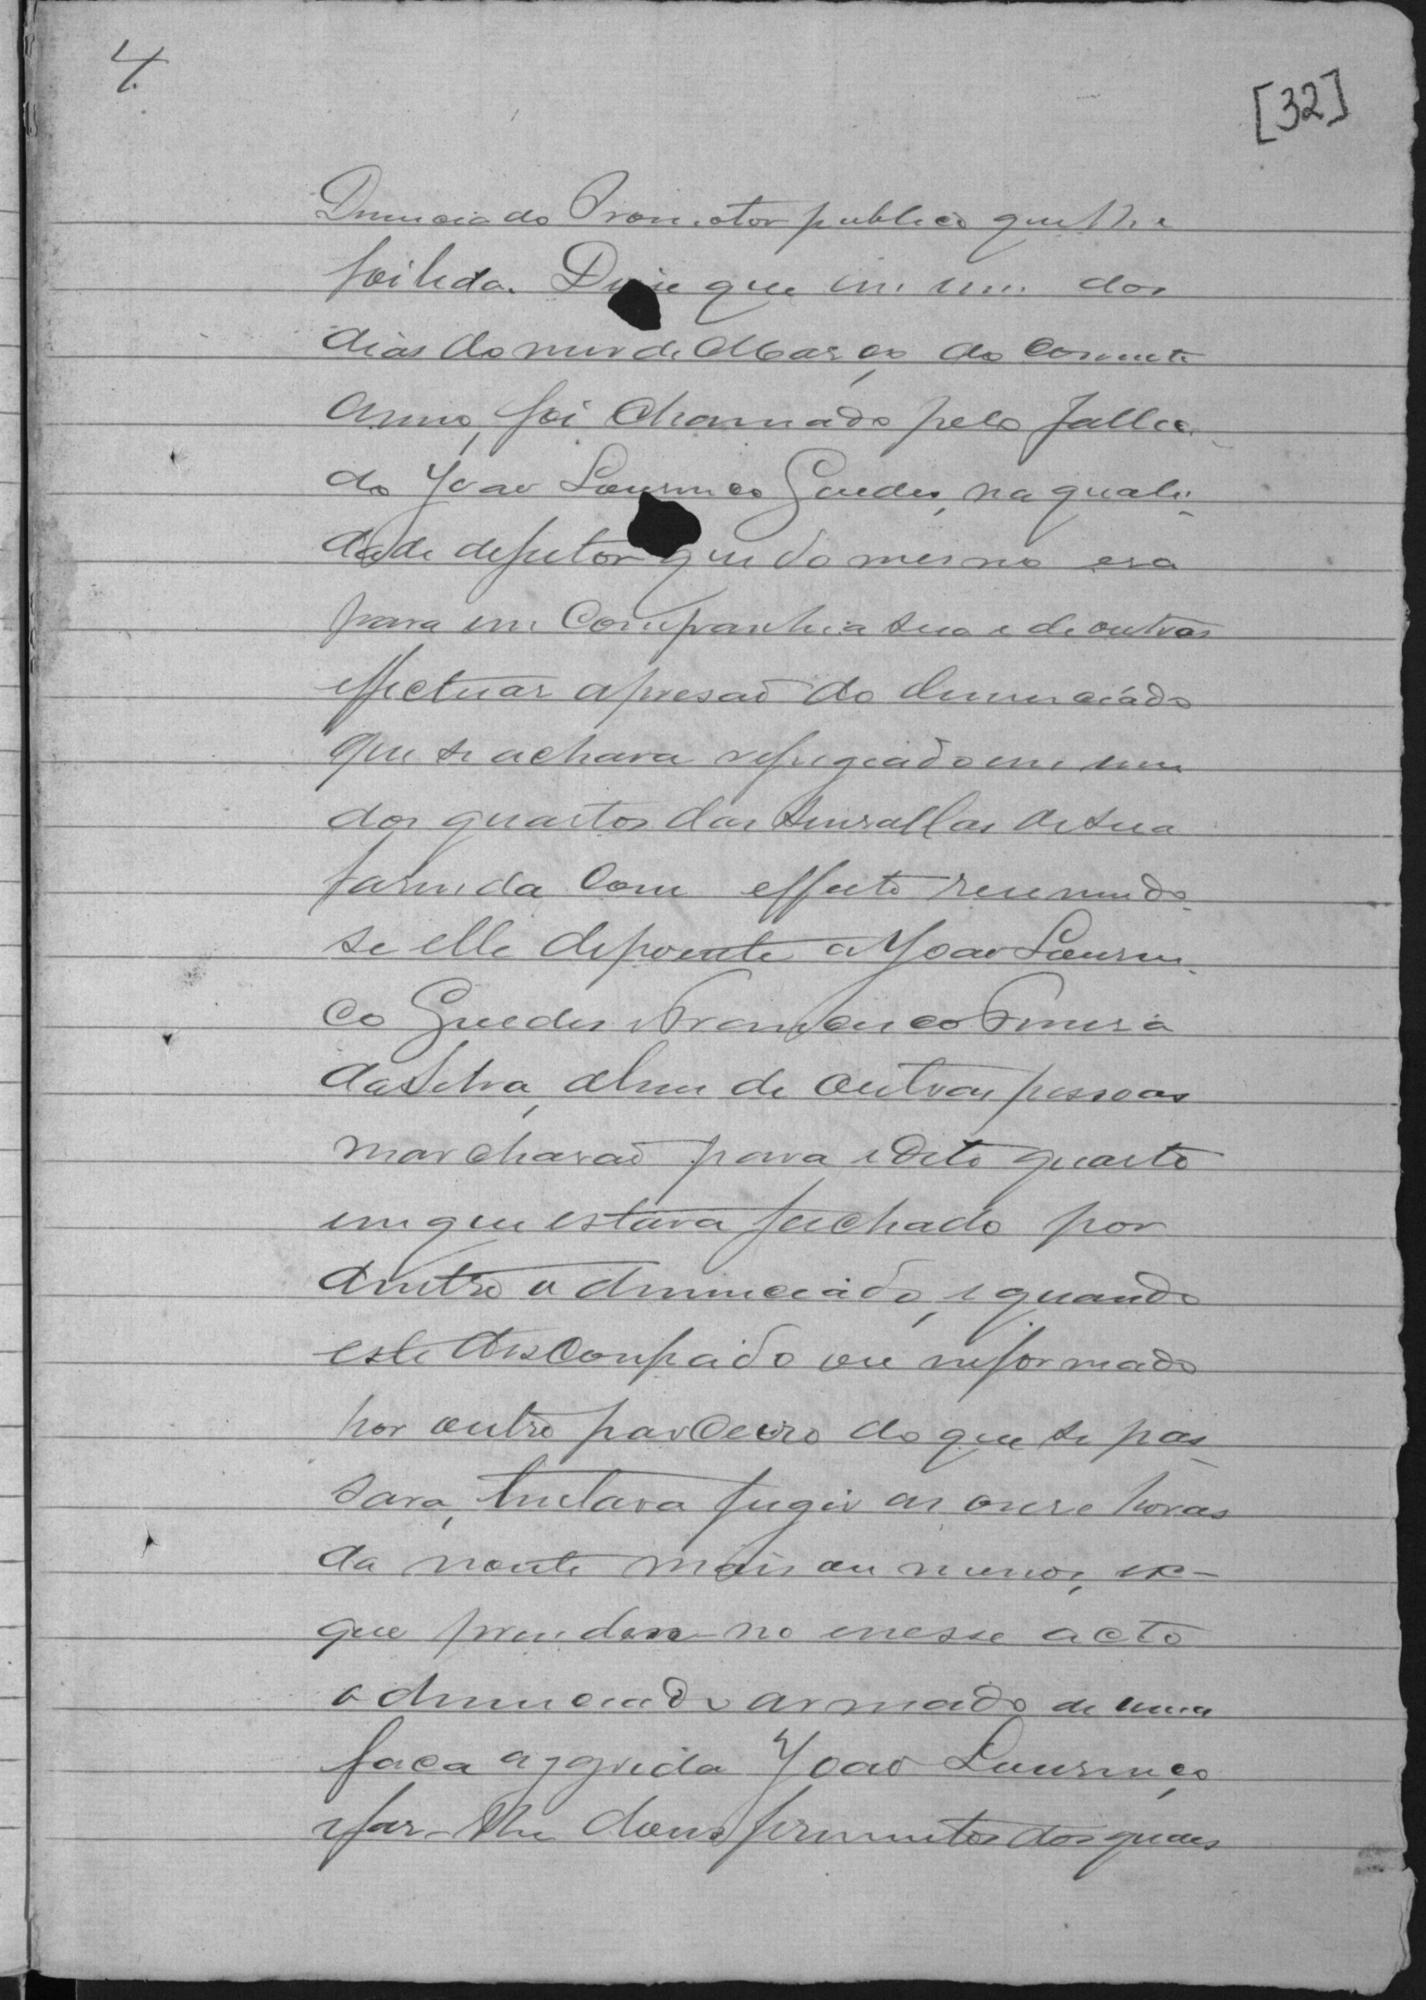 4
[32]
Denuncia do Promotor publico que lhe
foi lida. Disse que em um dos
dias do mez de Março do corrente
anno, foi chamado pelo falleci
do Joao Lourenço Guedes, na quali-
dade de feitor que do mesmo era
para em companhia sua e de outros
effectuar a prisaõ do denunciado
que se achava refugiado em um
dos quartos das senzallas de sua
fazenda com effeito reunindo-
se elle depoente a Joao Louren-
ço Guedes e Francisco Pereira
da Silva, alem de outras pessoas
marcharaõ para o dito quarto
em que estava fechado por
dentro o denunciado, e quando
este desconfiado ou informado
por outro parceiro do que se pas-
sava, tentava fugir as onze horas
da noute mais ou menos,
que prenderão-no e nesse acto
o denunciado armado de uma
faca aggrida Joao Lourenço
e faz-lhe dous ferimentos dos quaes